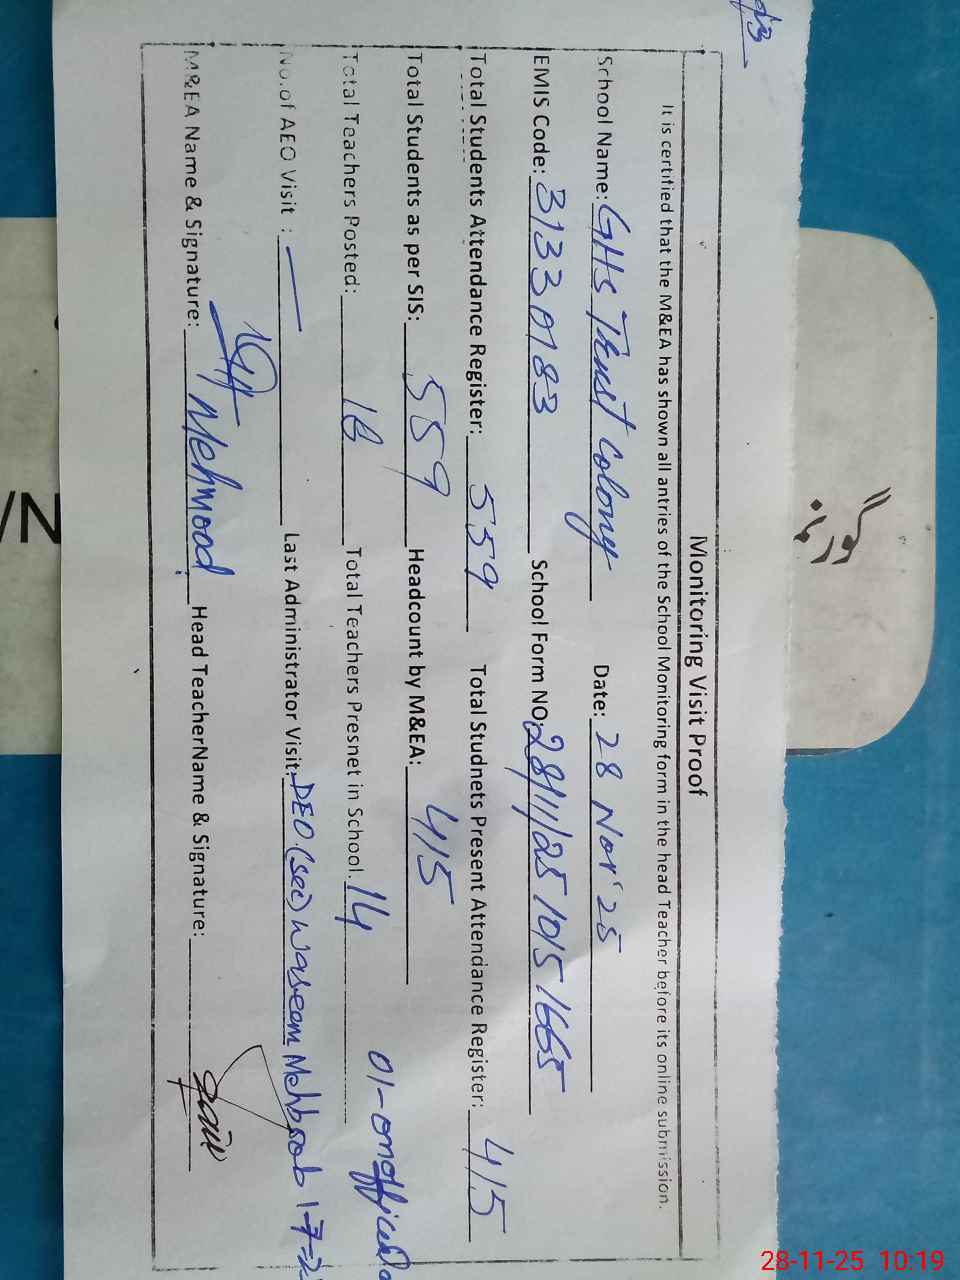 Monitoring Visit Proof
It is certified that the M&EA has shown all antries of the School Monitoring form in the head Teacher before its online submission.
School Name: GHS Trust Colony Date: 28 Nov'25
EMIS Code: 31330183 School Form NO: 28/11/25 1015 1665
Total Students Attendance Register: 559 Total Studnets Present Attendance Register: 415
Total Students as per SIS: 559 Headcount by M&EA: 415
Total Teachers Posted: 16 Total Teachers Presnet in School. 14 01-on
No.of AEO Visit : — Last Administrator Visit: DEO.(sec) Waseem
M&EA Name & Signature: Mehmood Head TeacherName & Signature:
گورنم
/N
28-11-25 10:19